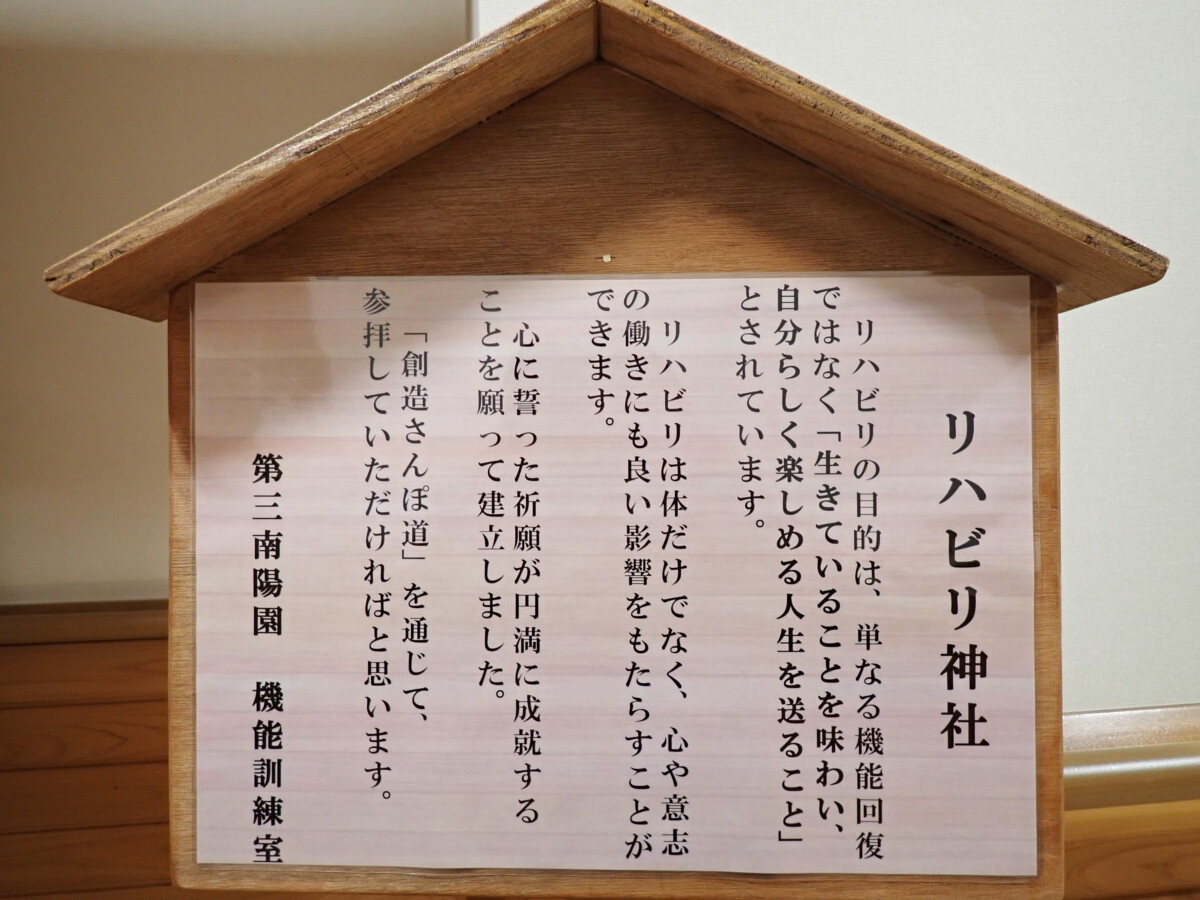 リハビリ神社
リハビリの目的は、単なる機能回復
ではなく「生きていることを味わい、
自分らしく楽しめる人生を送ること」
とされています。
リハビリは体だけでなく、心や意志
の働きにも良い影響をもたらすことが
できます。
心に誓った祈願が円満に成就する
ことを願って建立しました。
「創造さんぽ道」を通じて、
参拝していただければと思います。
第三南陽園　機能訓練室